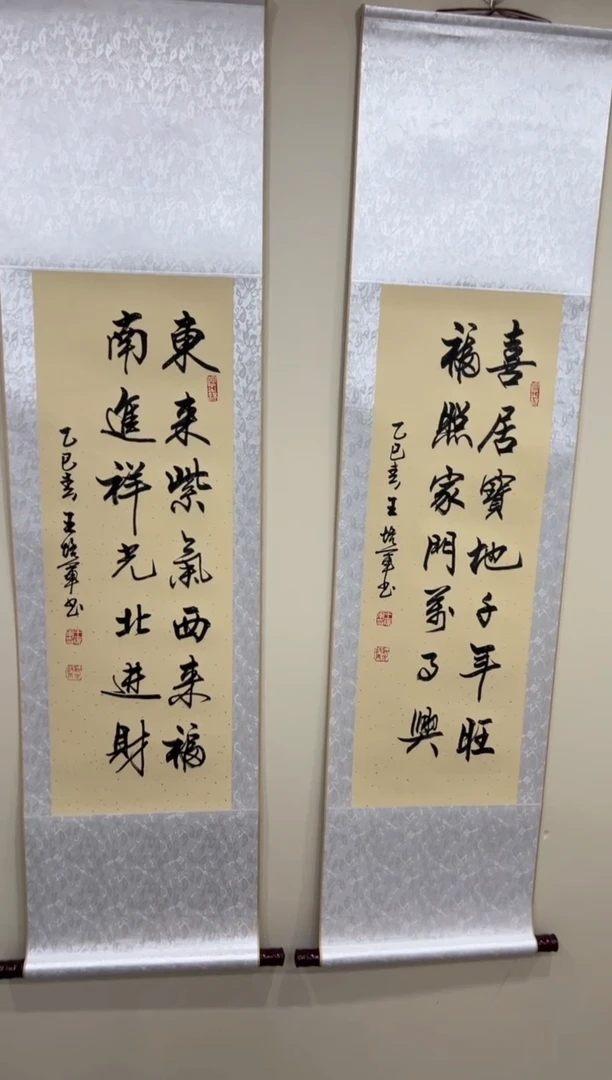 喜居寶地千年旺
福照家門萬事興
乙巳春王培軍书
東来紫氣西来福
南進祥光北进財
乙巳春王培軍书